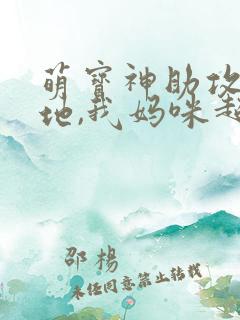 萌宝神助攻
地,我妈咪超
邵杨
未经同意禁止转载